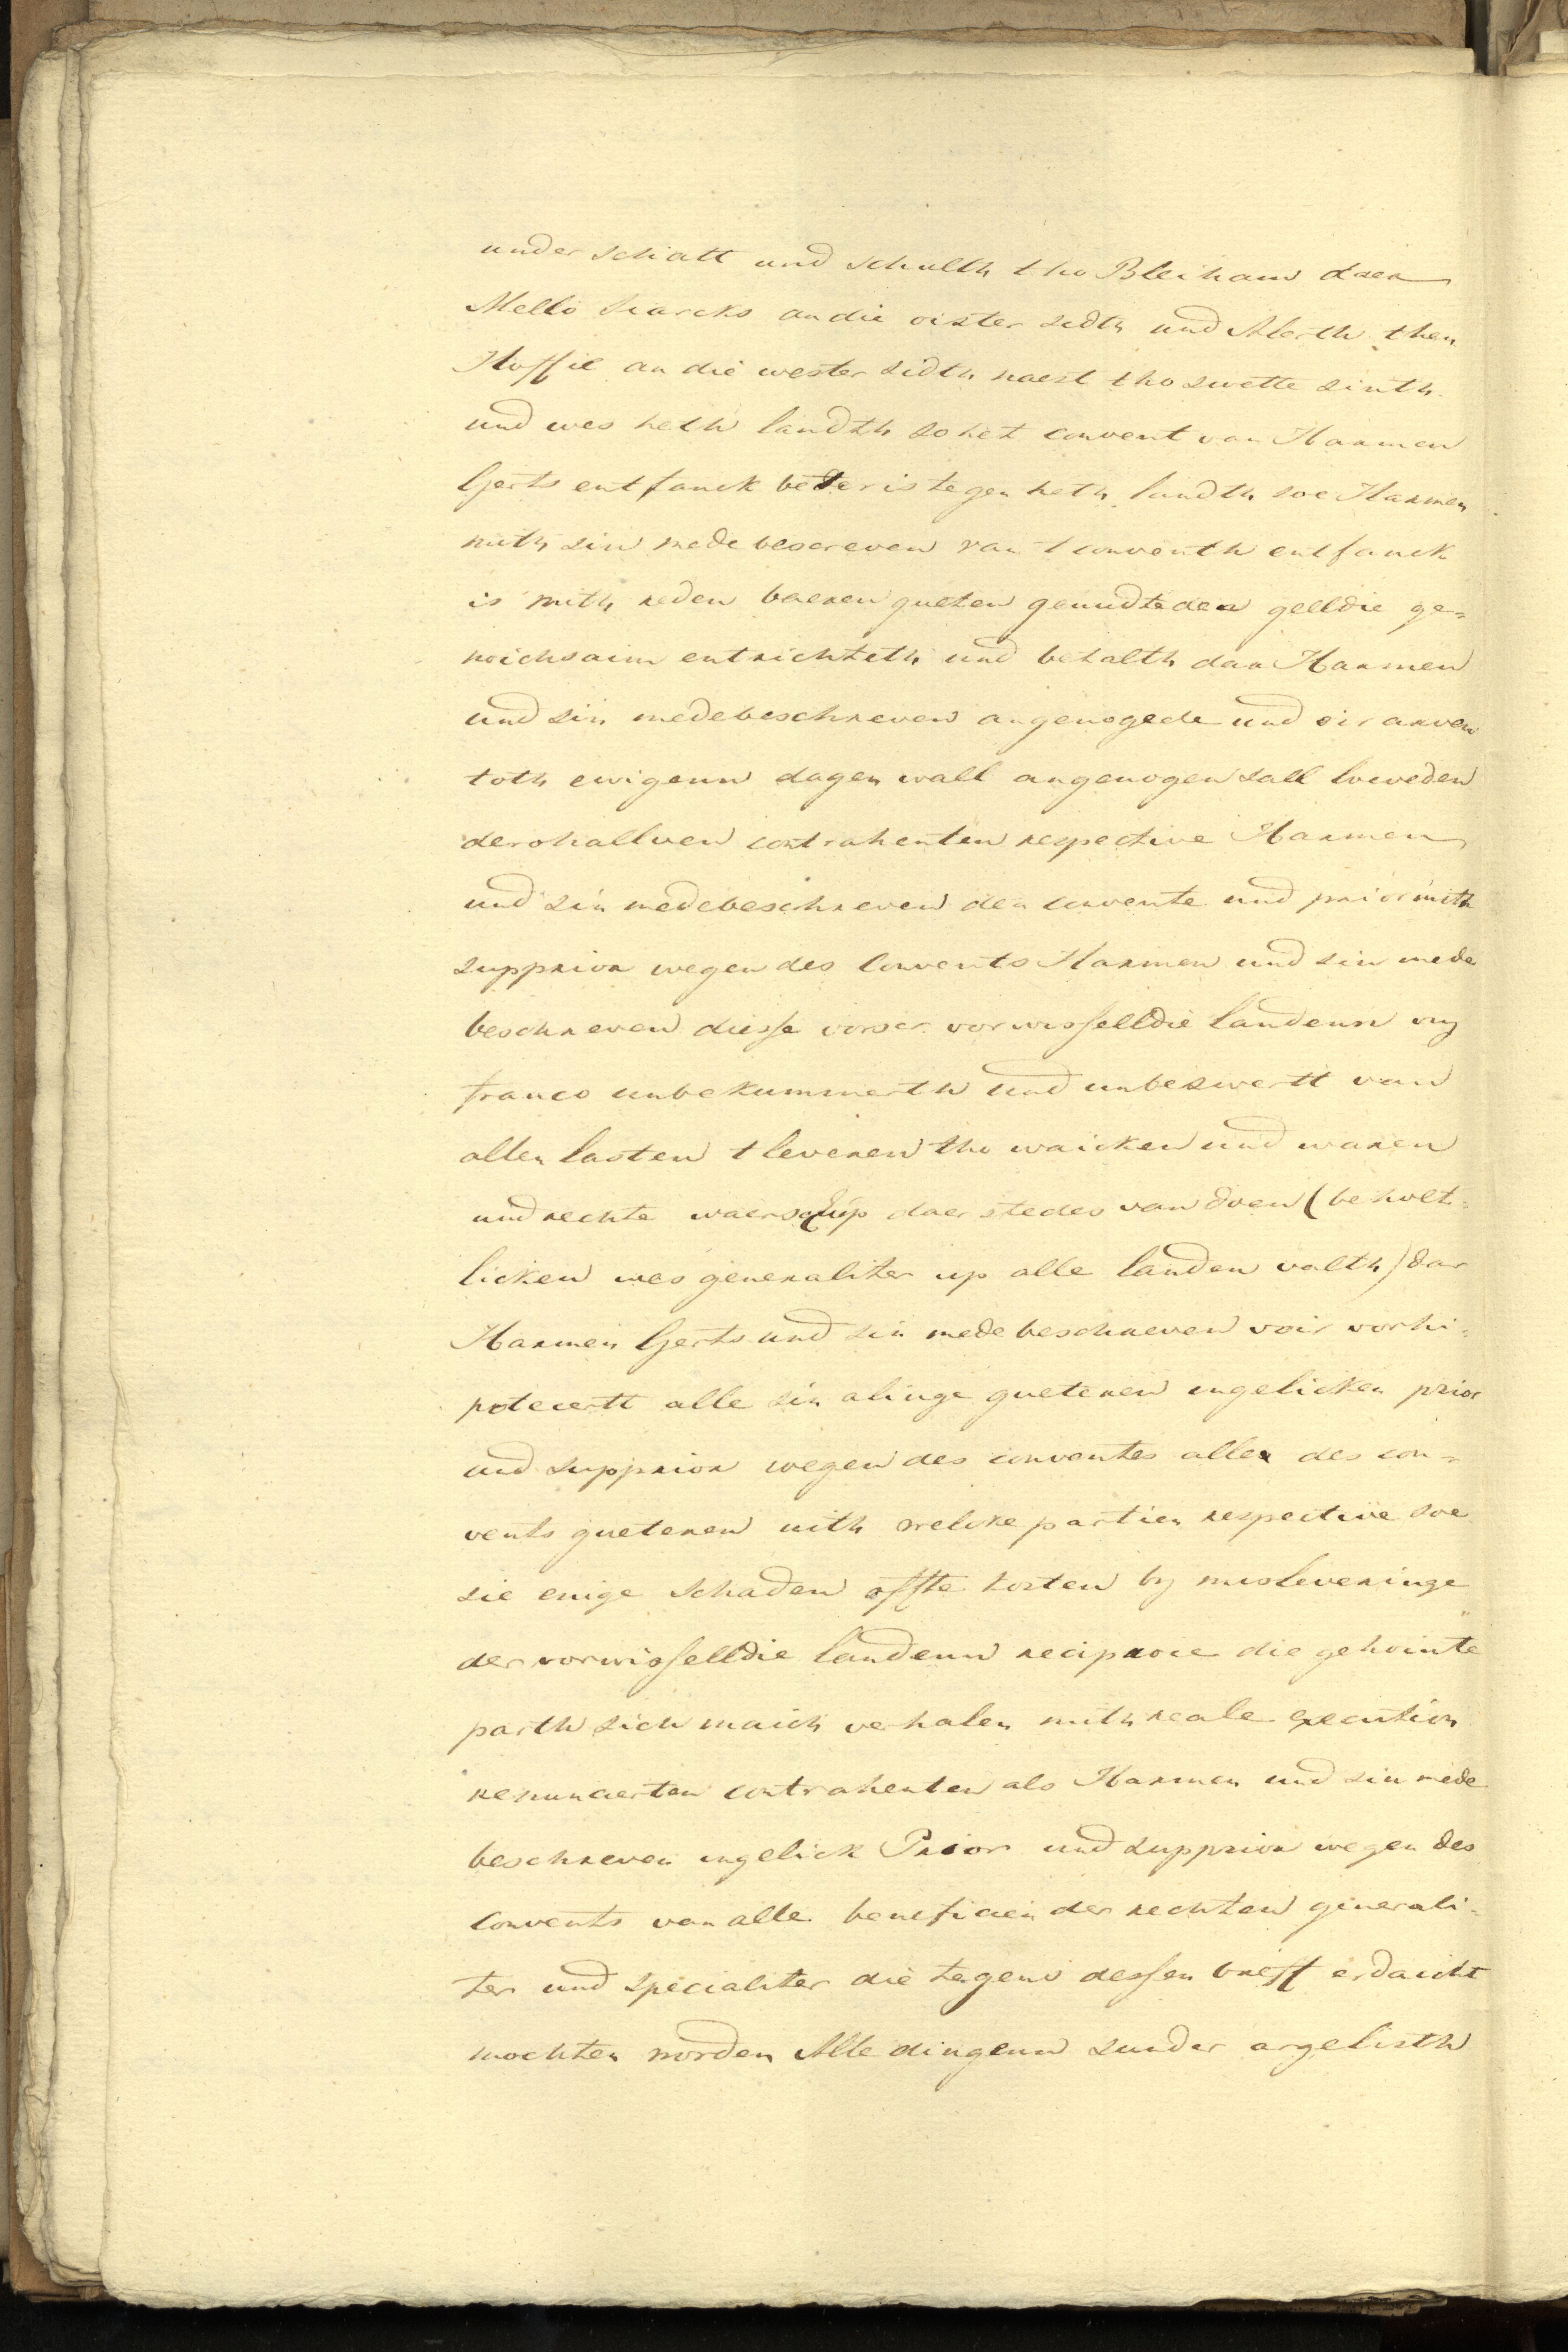 under schatt und schulth tho Bleiham daer
Mello Siarcks an die oister sidth und Alerth then
Hoffie an die wester sidth naest tho swette sinth
und wes heth landth so het convent van Harmen
Gerts entfanck beter is tegen heth landth soe Harmen
mith sin mede bescreven van t conventh entfanck
is mith reden baeren gueten genudteden gelldie ge=
noichsaim entrichteth und betalth dar Harmen
und sin medebeschreven angenogede und oir arven
toth ewigenn dagen wall angenogen sall loeveden
derohallven contrahenten respective Harmen
und sin medebeschreven den convente und prior mith
supprior wegen des Convents Harmen und sin mede
beschreven diesse vorscr. vorwisselldie landenn vry
franco unbekummerth und unbeswertt van
allen lasten t leveren tho waicken und waren
und rechte waerschup daer stedes van doen (beholt=
licken wes generaliter up alle landen valth) dar
Harmen Gerts und sin mede beschreven voir vorhi=
potecertt alle sin alinge gueteren ungelicken prior
und supprior wegen des conventes aller des con=
vents gueteren uith welcke partien respective soe
sie enige schaden offte kosten by misleveringe
der vorwisselldie landenn reciproce die gehointe
parth sich maich verhalen mith reale execution
renuncierten contrahenten als Harmen und sin mede
beschreven ungelick Prior und supprior wegen des
Convents van alle beneficien der rechten generali=
ter und specialiter die tegens dessen brieff erdaicht
mochten worden Alle dingenn sunder argelisth